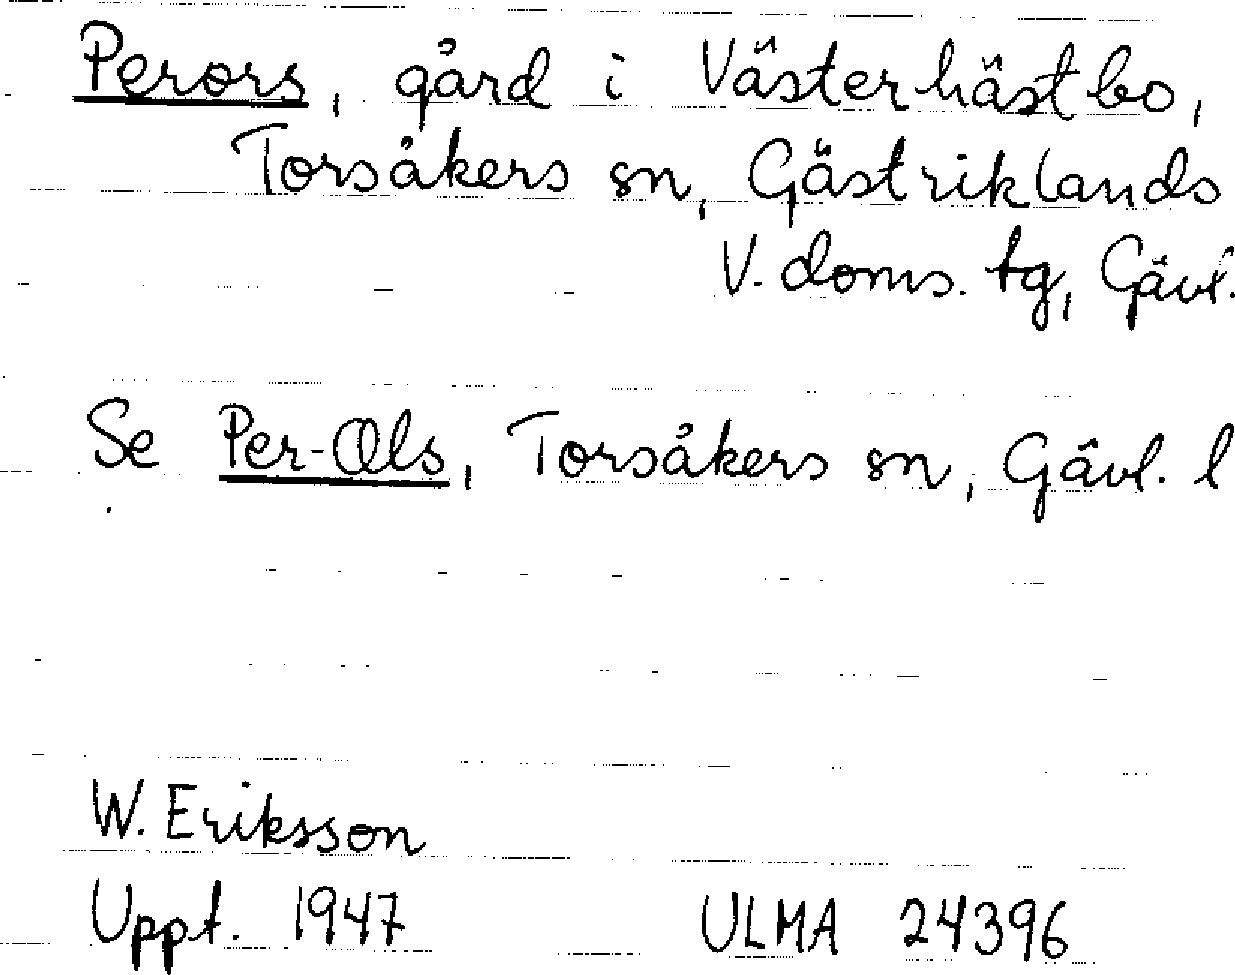 Perors, gård i Västerhästbo,
Torsåkers sn, Gästriklands
V. doms. tg, Gävl.
Se Per-Ols, Torsåkers sn, Gävl. l
W. Eriksson
Uppt. 1947 ULMA 24396